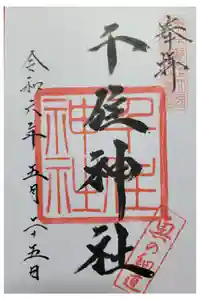 奉拝
千住神社
千住
神社
令和六年 五月二十五日
奥の細道